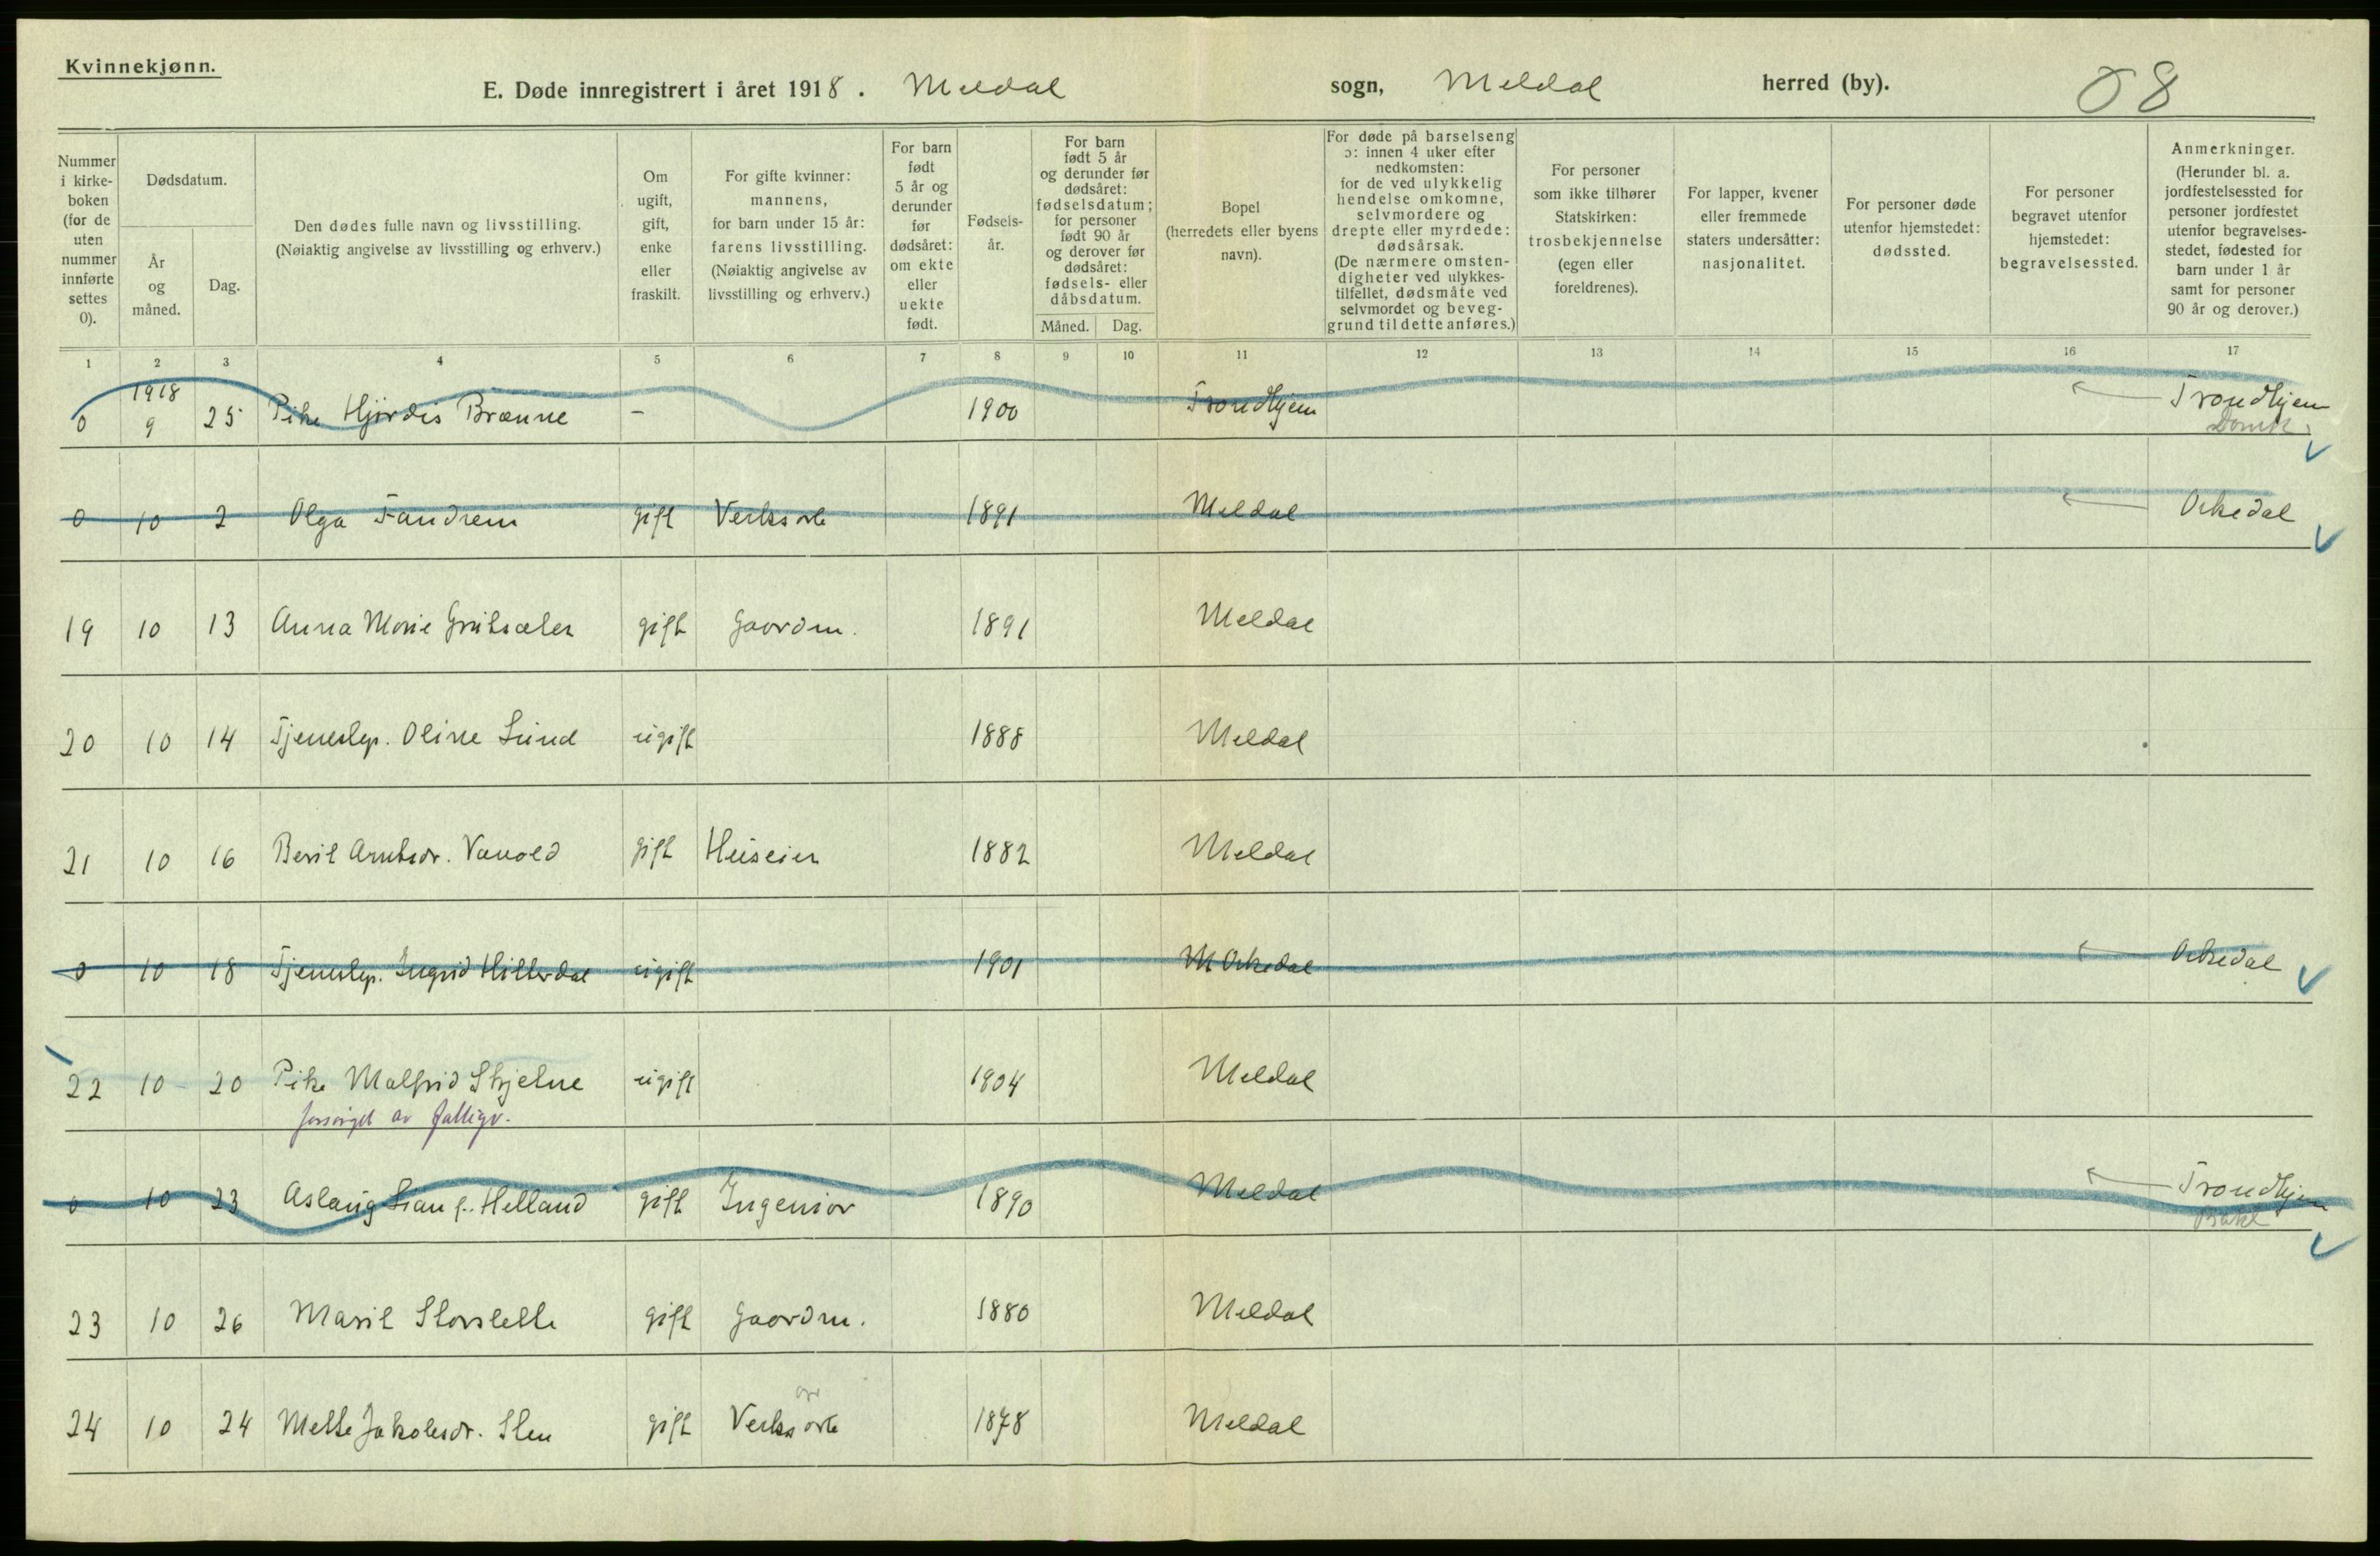 Kvinnekjønn.
E. Døde innregistrert i året 1918. Meldal sogn, Meldal herred (by). 58
Nummer i kirke-boken (for de uten nummer innførte settes 0).
Dødsdatum.
År og måned.
Dag.
Den dødes fulle navn og livsstilling.
(Nøiaktig angivelse av livsstilling og erhverv.)
Om ugift, gift, enke eller fraskilt.
For gifte kvinner: mannens, for barn under 15 år: farens livsstilling. (Nøiaktig angivelse av livsstilling og erhverv.)
For barn født 5 år og derunder før dødsåret: om ekte eller uekte født.
Fødsels-år.
For barn født 5 år og derunder før dødsåret: fødselsdatum; for personer født 90 år og derover før dødsåret: fødsels- eller dåbsdatum.
Måned.
Dag.
Bopel (herredets eller byens navn).
For døde på barselseng ɔ: innen 4 uker efter nedkomsten: for de ved ulykkelig hendelse omkomne, selvmordere og drepte eller myrdede: dødsårsak. (De nærmere omsten-digheter ved ulykkes-tilfellet, dødsmåte ved selvmordet og beveg-grund til dette anføres.)
For personer som ikke tilhører Statskirken: trosbekjennelse (egen eller foreldrenes).
For lapper, kvener eller fremmede staters undersåtter: nasjonalitet.
For personer døde utenfor hjemstedet: dødssted.
For personer begravet utenfor hjemstedet: begravelsessted.
Anmerkninger. (Herunder bl. a. jordfestelsessted for personer jordfestet utenfor begravelses-stedet, fødested for barn under 1 år samt for personer 90 år og derover.)
1 2 3 4 5 6 7 8 9 10 11 12 13 14 15 16 17
1918
0 9 25 Pike Hjørdis Brænne - 1900 Trondhjem ← Trondhjem
Domk.
0 10 2 Olga Fandrem gift Verksarb 1891 Meldal ← Orkedal
19 10 13 Anna Marie Grutsæter gift Gaardm. 1891 Meldal
20 10 14 Tjenestep. Oline Lund ugift 1888 Meldal
21 10 16 Berit Arntsdr. Vavold gift Huseier 1882 Meldal
0 10 18 Tjenestep. Ingrid Hitterdal ugift 1901 M Orkedal ← Orkedal
22 10 20 Pike Malfrid Skjelne ugift 1904 Meldal
forsørget av fattigv.
0 10 23 Aslaug Lian f. Helland gift Ingeniør 1890 Meldal ← Trondhjem
Bakl
23 10 26 Marit Storslette gift Gaardm. 1880 Meldal
24 10 24 Mette Jakobsdr. Sten gift Verksarb 1878 Meldal